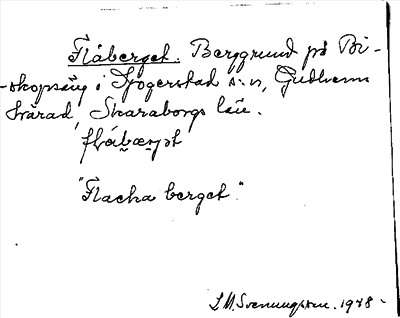 Flåberget. Berggrund på Bi-
-skopsäng i Sjogerstad s:n, Gudhems
härad, Skaraborgs län.
"Flacka berget."
S. M. Svenungsson. 1918-